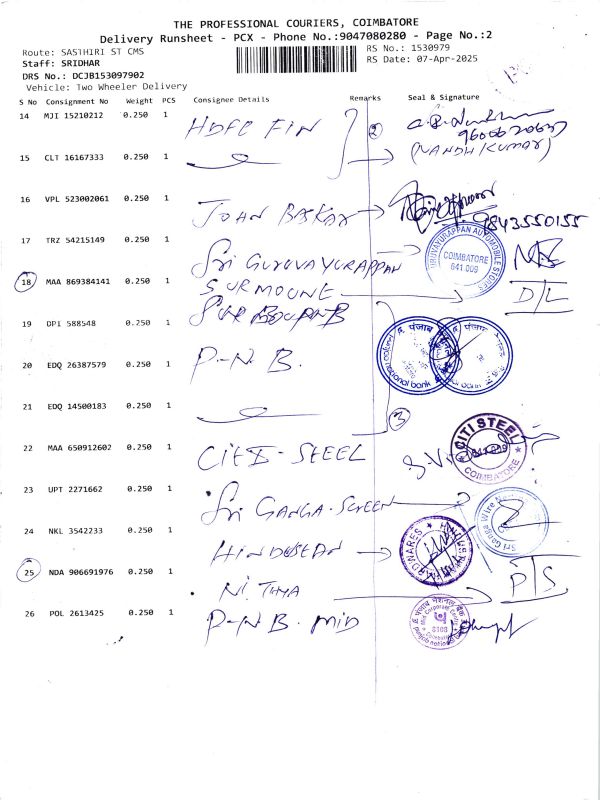 THE PROFESSIONAL COURIERS, COIMBATORE
Delivery Runsheet - PCX - Phone No.:9047080280 - Page No.:2
Route: SASTHIRI ST CMS
RS No.: 1530979
Staff: SRIDHAR
RS Date: 07-Apr-2025
DRS No.: DCJB153097902
Vehicle: Two Wheeler Delivery
S No Consignment No Weight PCS Consignee Details Remarks Seal & Signature
14 MJI 15210212 0.250 1 HDFC FIN 2
9600620637
15 CLT 16167333 0.250 1 (NANDHKUMAR)
16 VPL 523002061 0.250 1 JOHN BASKAR
9843550155
17 TRZ 54215149 0.250 1 Sri GURUVAYURAPPAN
GURUVAYURAPPAN AUTOMOBILE STORES
COIMBATORE
641 009
18 MAA 869384141 0.250 1 SURMOUNT D/L
19 DPI 588548 0.250 1
20 EDQ 26387579 0.250 1 P-N B.
national bank
21 EDQ 14500183 0.250 1 3
22 MAA 650912602 0.250 1 CITI-STEEL
CITI STEEL
COIMBATORE
23 UPT 2271662 0.250 1 Sri GANGA-SCREEN
24 NKL 3542233 0.250 1 HINDUSTAN
25 NDA 906691976 0.250 1 NITHYA P/S
26 POL 2613425 0.250 1 P-N B. MID